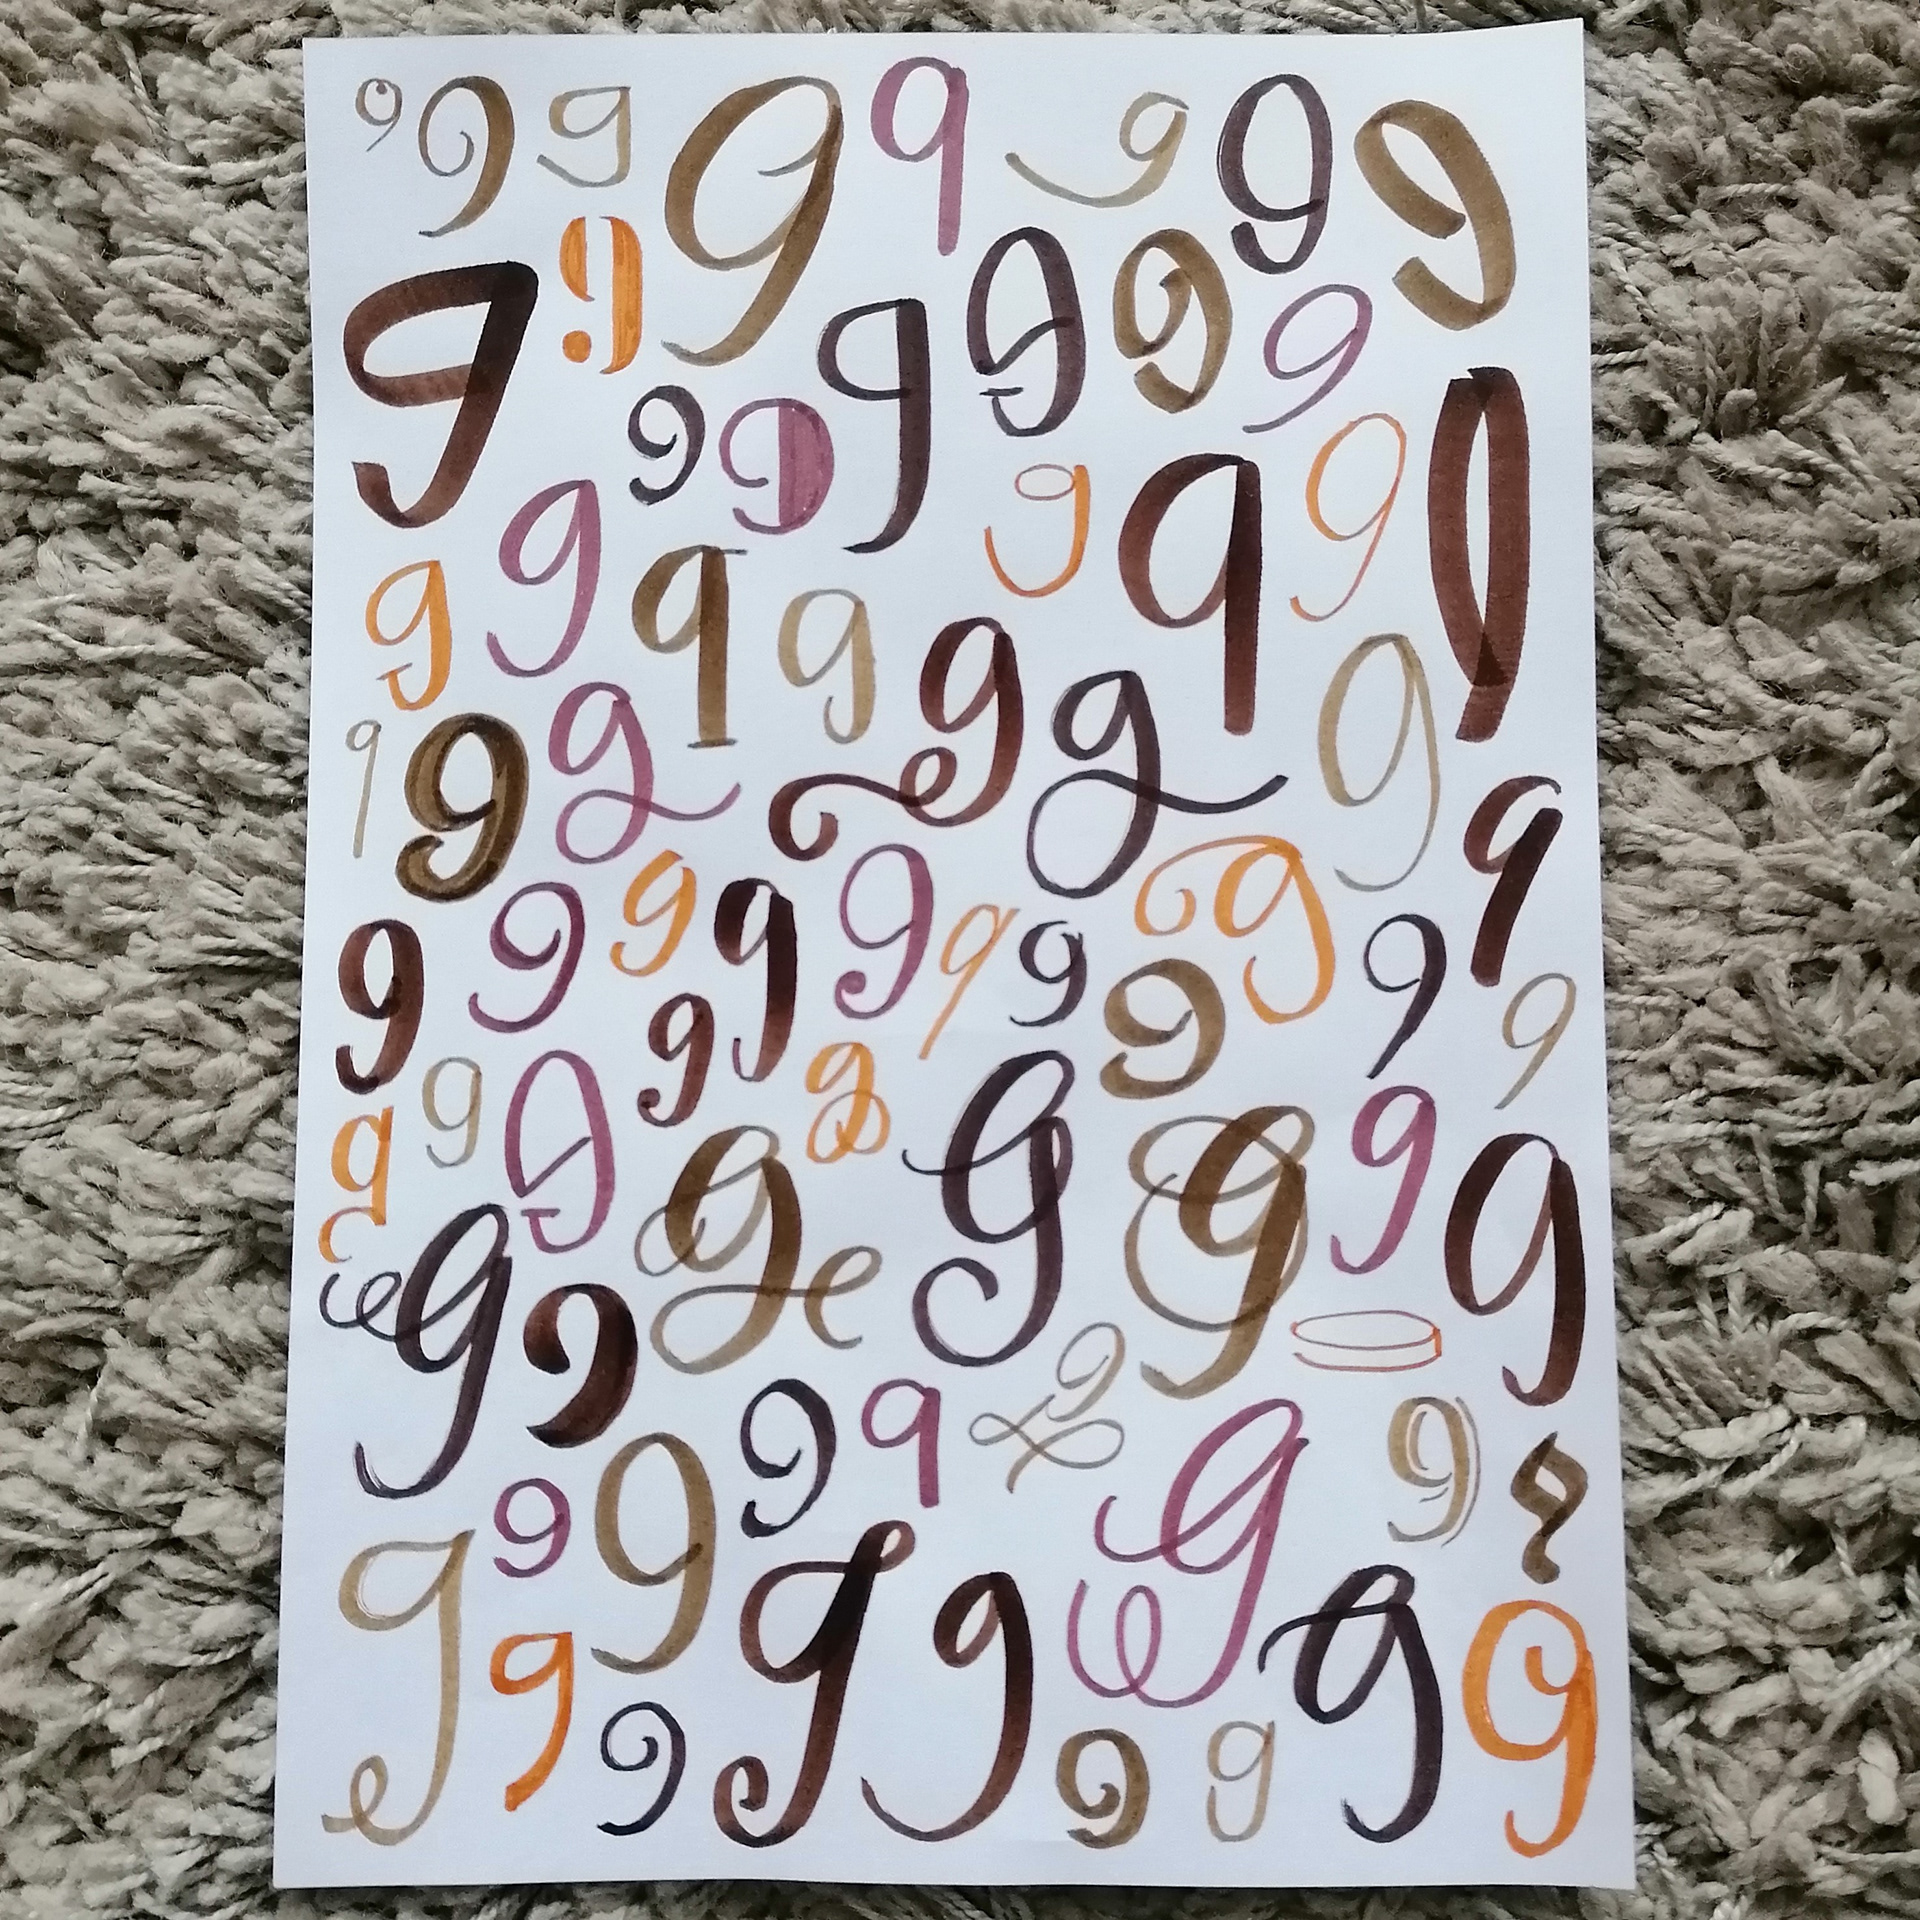 9 9 9 9 9 9 9 9
9 9 9 9 9 9
9 9 9 9 9 9
9 9 9 9 9 9
9 9 9 9 9
9 9 9 9 9 9 9 9 9
9 9 9 9 9 9
9 9 9 9 9 9
9 9 9 9
9 9 9 9 9 9 9
9 9 9 9 9 9 9 9 9